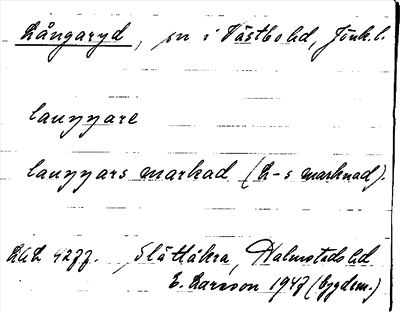 Långaryd, sn i Västbo hd, Jönk.l.
langgare
langgars markad (L-s marknad).
Slättåkra, Halmstads hd
E. Larsson 1947 (bygdem.)